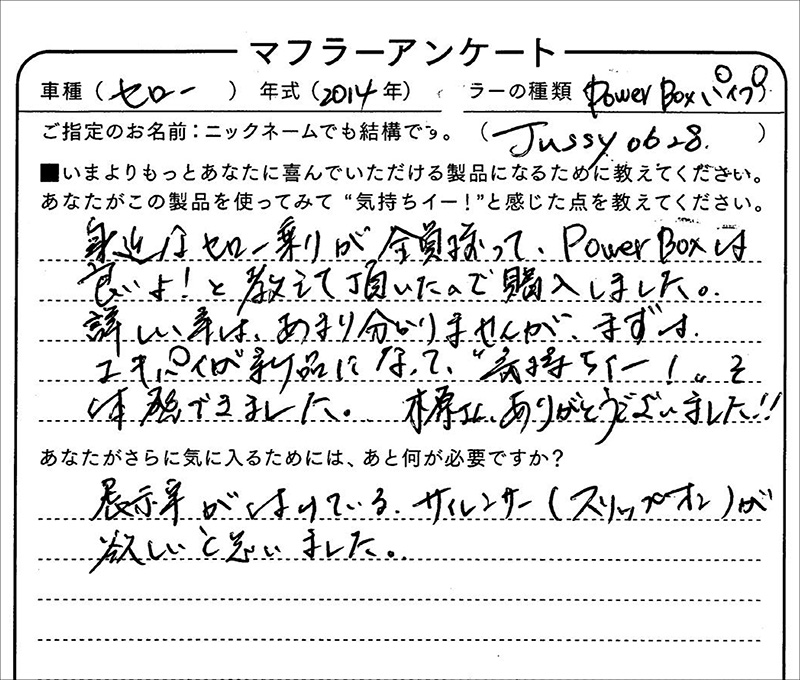 マフラーアンケート
車種（セロー）　年式（2014年）　ラーの種類（PowerBoxパイプ）
ご指定のお名前：ニックネームでも結構です。（Jussy0628.）
■いまよりもっとあなたに喜んでいただける製品になるために教えてください。
あなたがこの製品を使ってみて“気持ちイー！”と感じた点を教えてください。
身近なセロー乗りが全員揃って、PowerBoxは
良いよ！と教えて頂いたので購入しました。
詳しい事は、あまり分かりませんが、まずは
エキパイが新品になって、“気持ちイー！„を
体感できました。　ありがとうございました!!
あなたがさらに気に入るためには、あと何が必要ですか？
展示車が付けている、サイレンサー（スリップオン）が
欲しいと思いました。